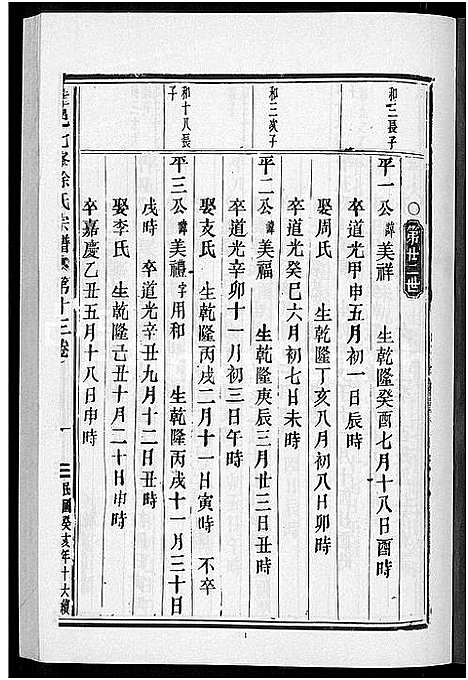 第廿二世
和三長子
平一公諱美祥 生乾隆癸酉七月十八日酉時
卒道光甲申五月初一日辰時
娶周氏 生乾隆丁亥八月初八日卯時
卒道光癸巳六月初七日未時
和三次子
平二公諱美福 生乾隆庚辰三月廿三日丑時
卒道光辛卯十一月初三日午時
娶支氏 生乾隆丙戌二月十一日寅時 不卒
和十八長子
平三公諱美禮字用和 生乾隆丙戌十一月三十日
戌時 卒道光辛丑九月十二日丑時
娶李氏 生乾隆己丑十月二十日申時
卒嘉慶乙丑五月十八日申時
徐氏宗譜 第十三卷 一 民國癸亥年十大續
1